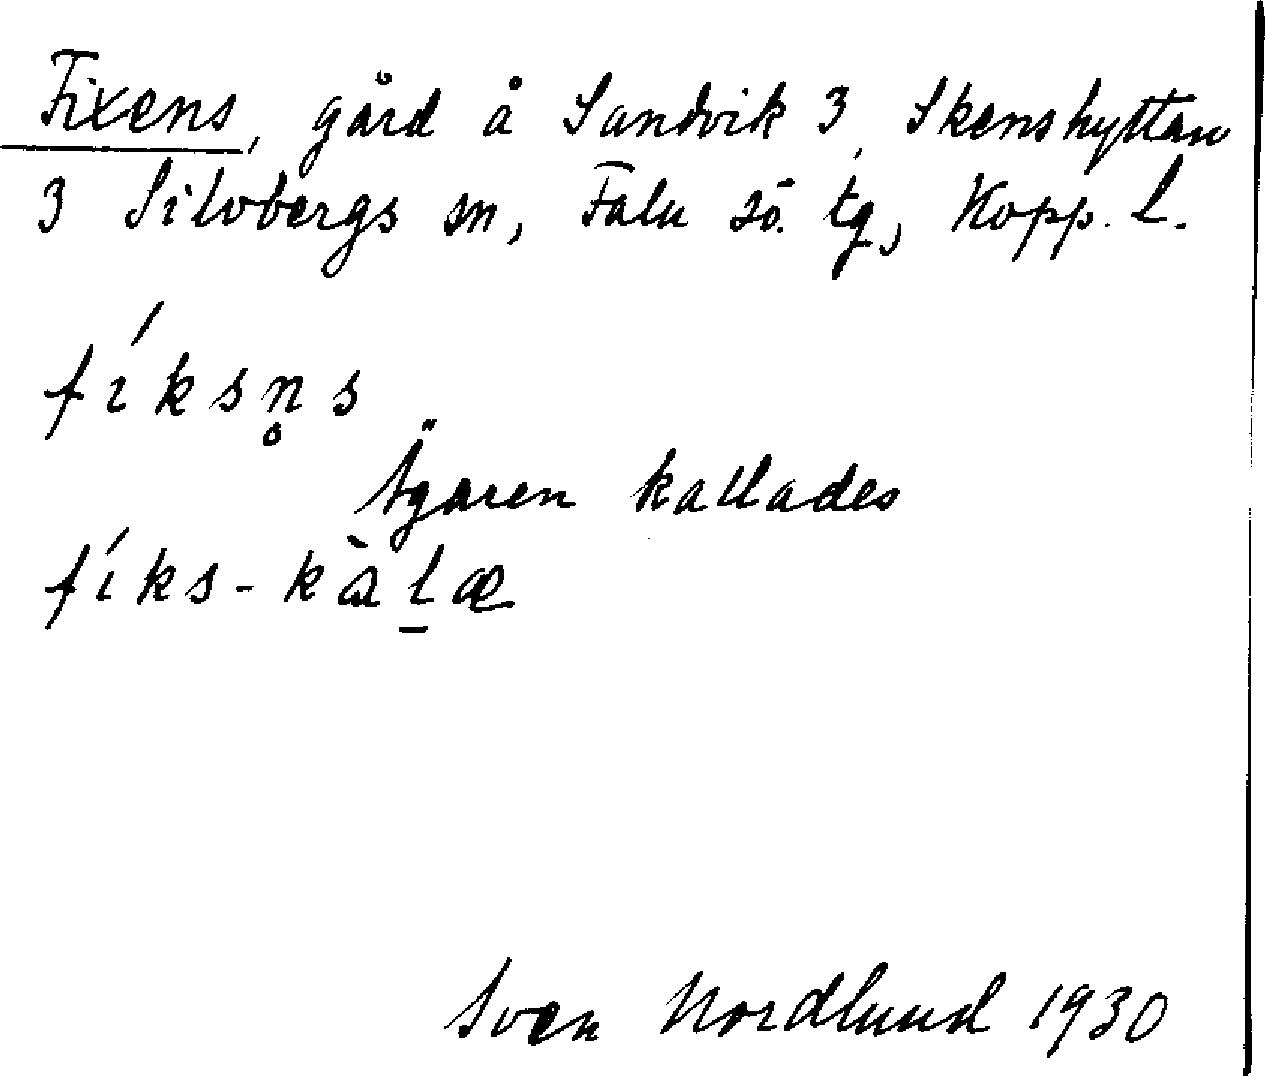 Fixens, gård å Sandvik 3, Skenshyttan
3 Silvbergs sn, Falu sö. tg, Kopp. l.
fíksn̥s
Ägaren kallades
fíks-kàl̠æ
Sven Nordlund 1930